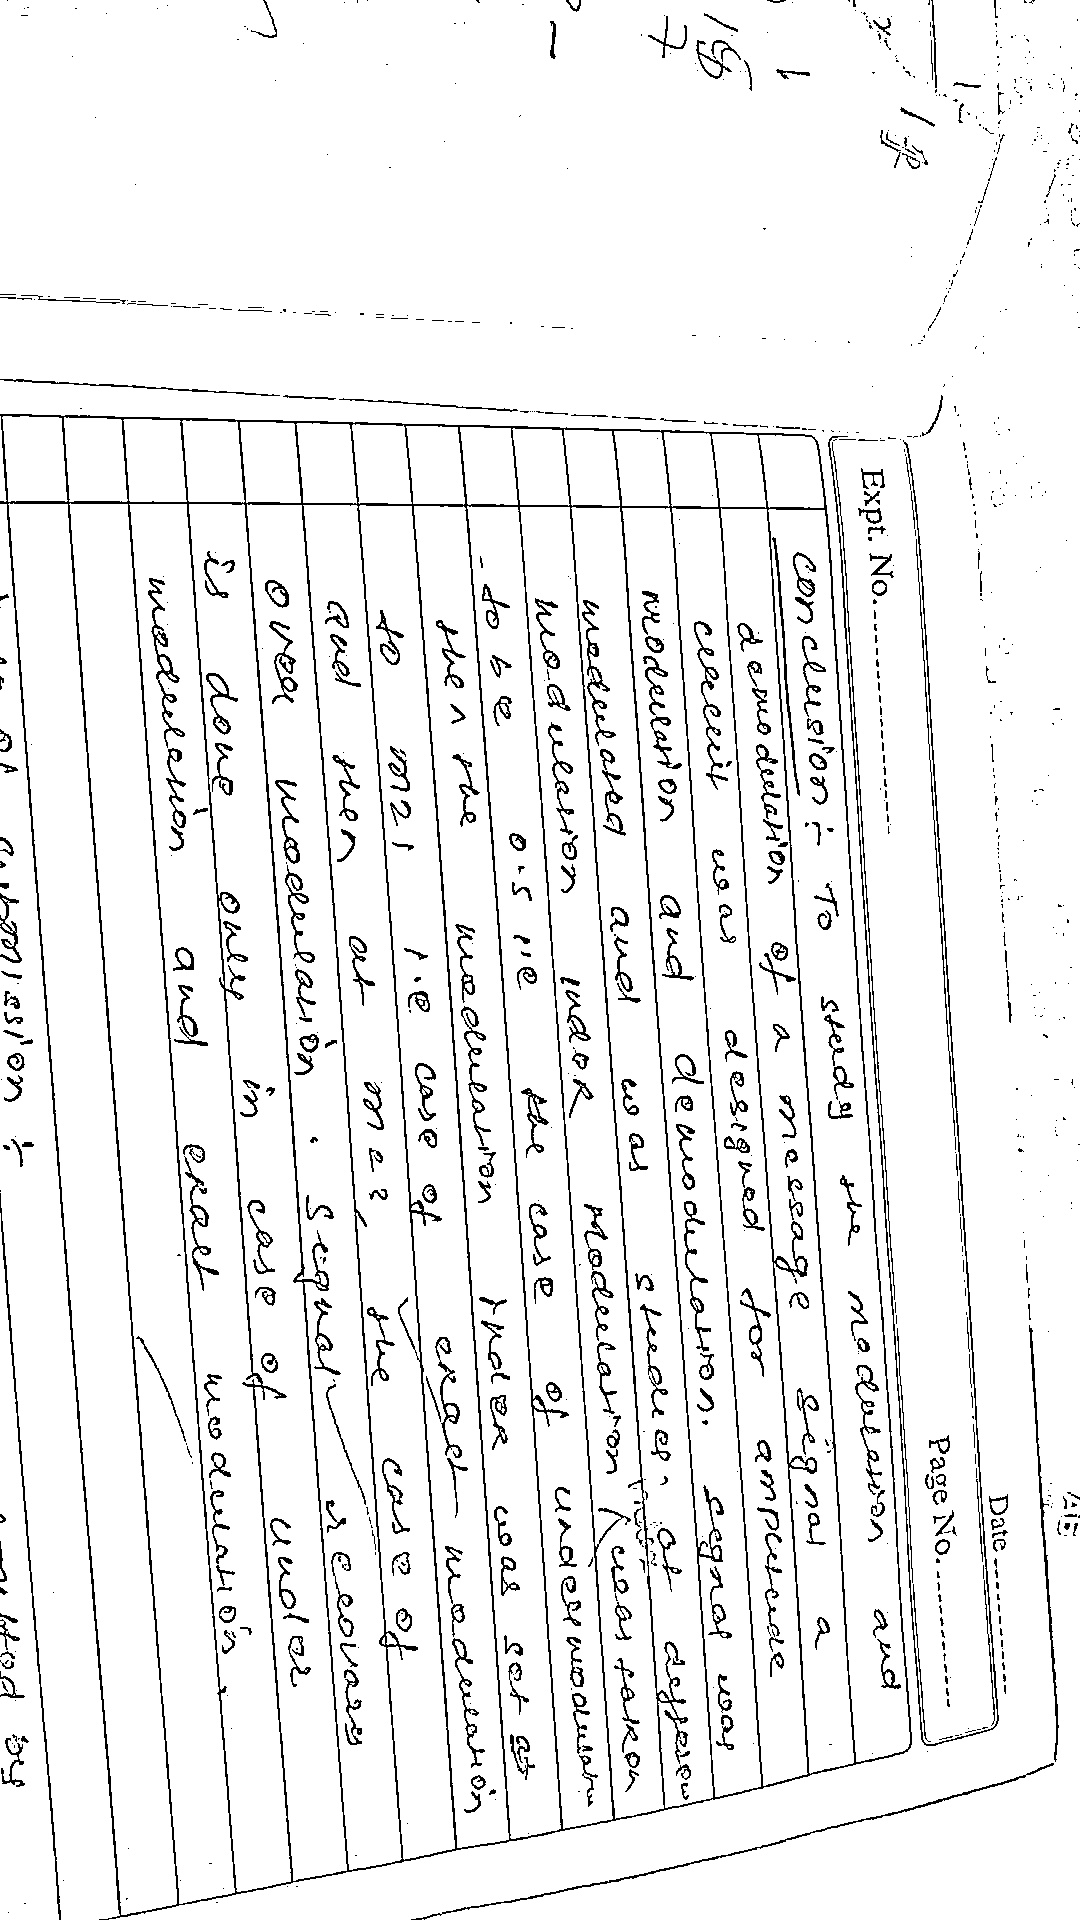 Date
Page No.
Expt. No.
conclusion :- To study the modulation and
demodulation of a message signal a
circuit was designed for amplitude
modulation and demodulation. signal was
modulated and was studied at
modulation index modulation was taken
to be 0.5 i.e the case of undermodulation
then the modulation index was set at
to m=1 i.e case of exact modulation
and then at the case of
over modulation. signal recovery
is done only in case of under
modulation and exact modulation.